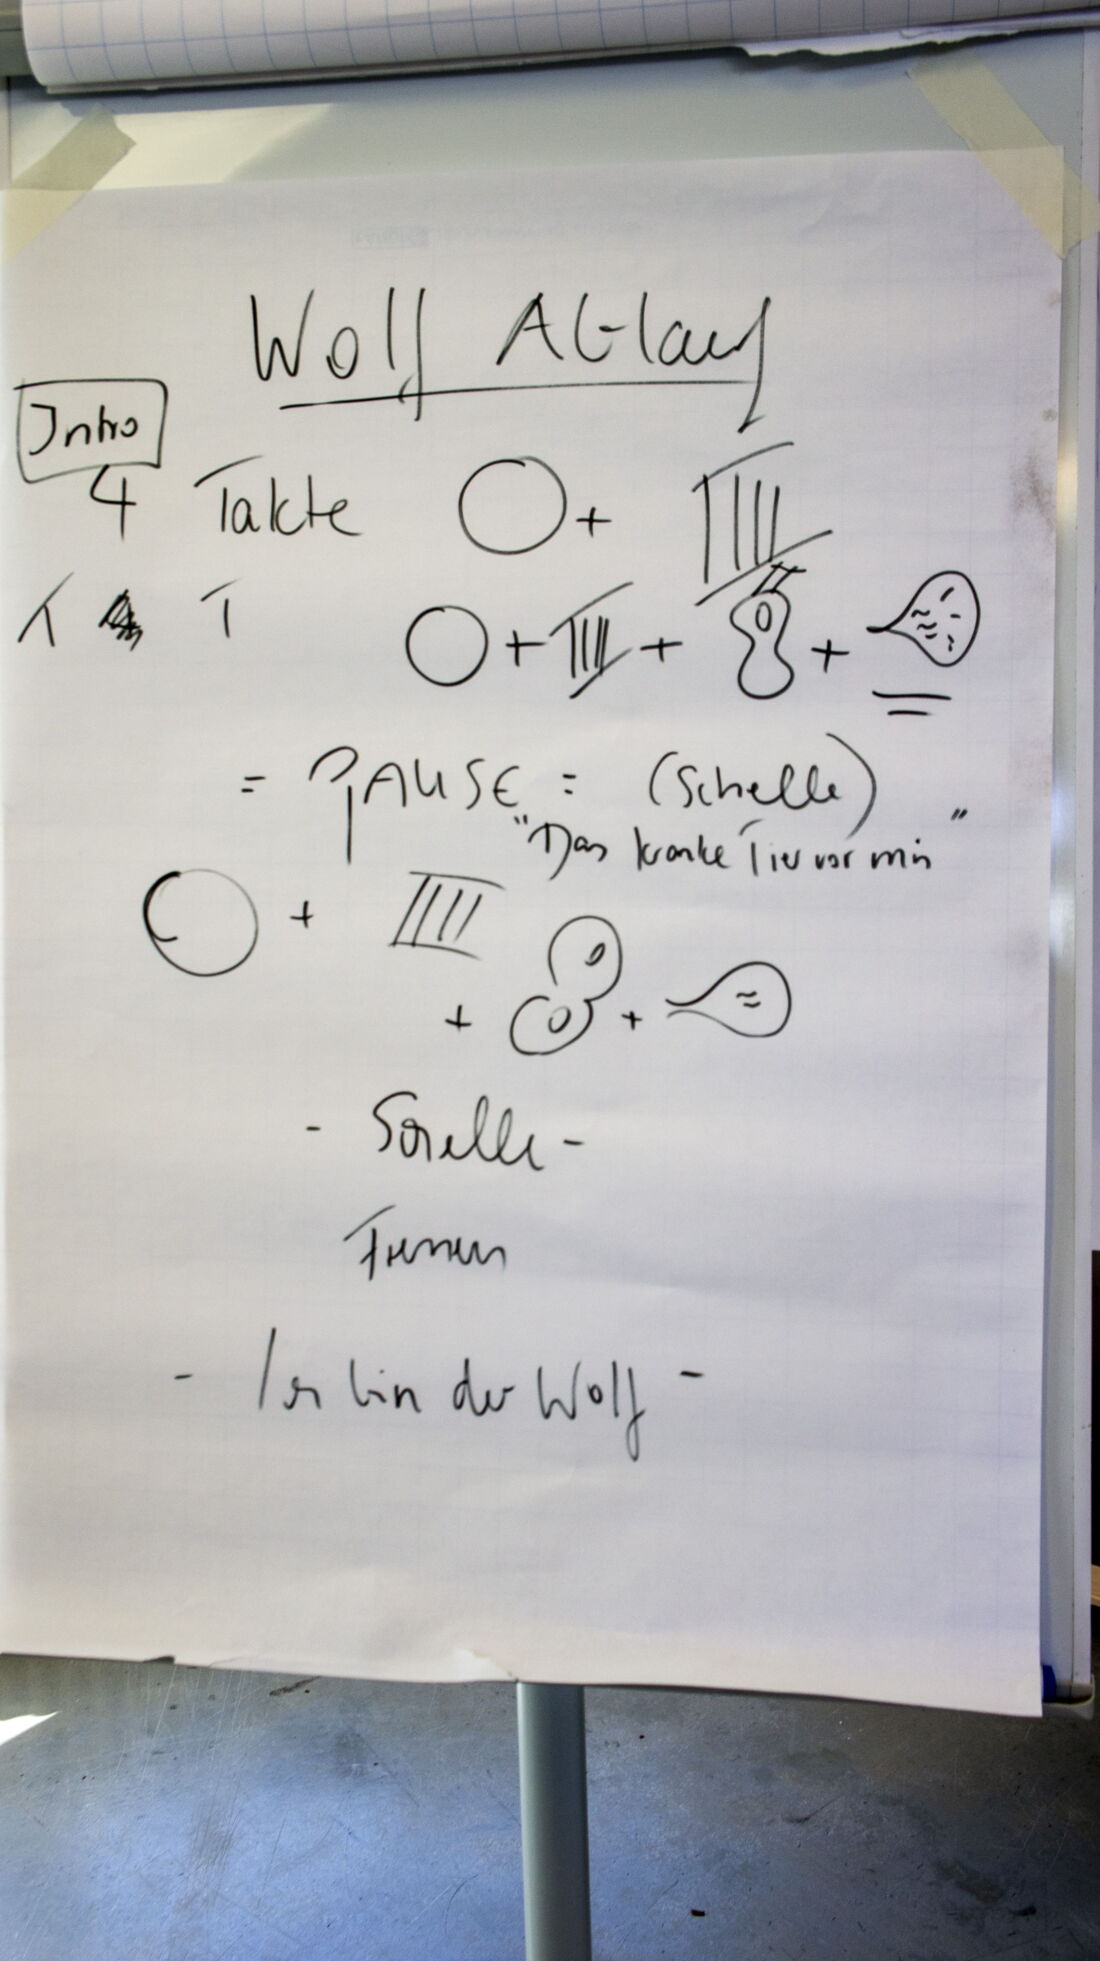 Wolf Ablauf
Intro
4 Takte +
+ + +
= PAUSE = (Schelle)
"Das kranke Tier vor mir"
+
+ +
- Schelle -
- Ich bin der Wolf -